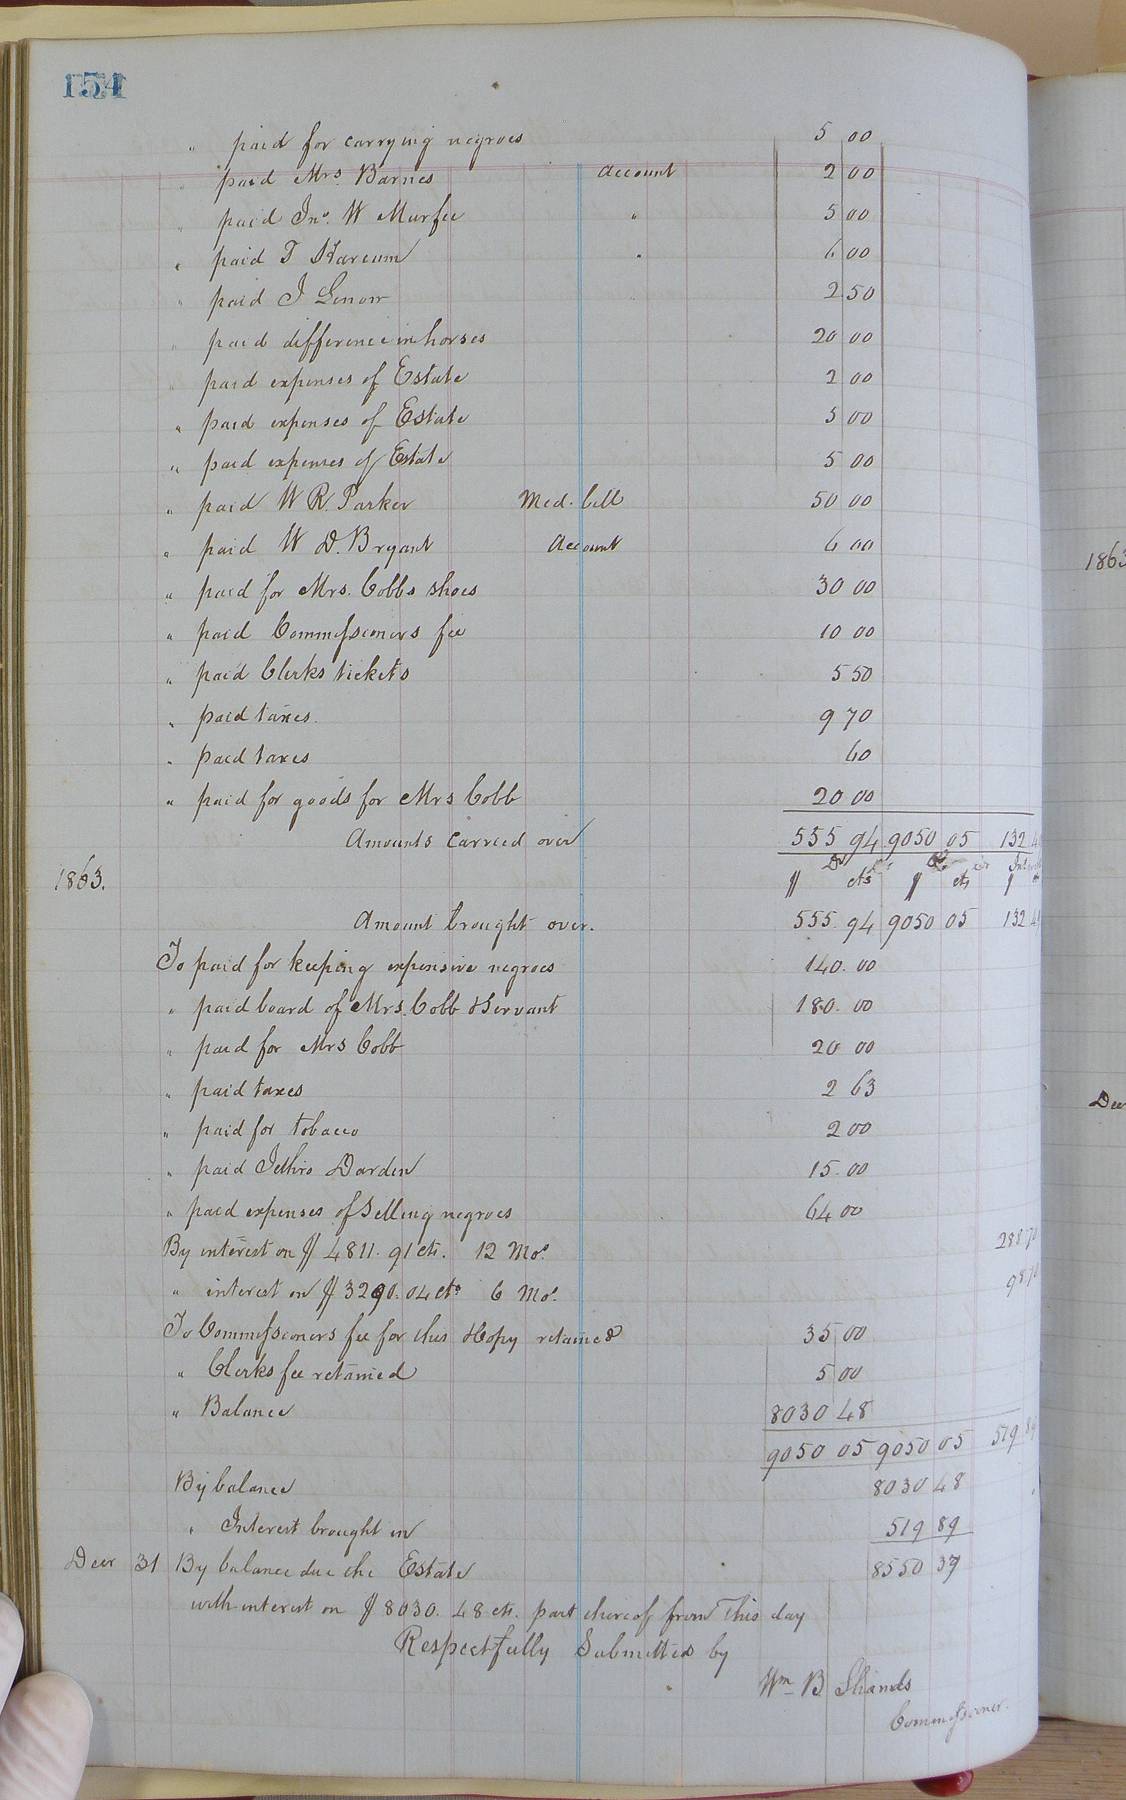 154
" paid for carrying negroes 5 00
" paid Mrs. Barnes account 2 00
" paid Jno. W Murfee " 5 00
" paid T Harcum " 6 00
" paid J Lenow 2 50
" paid difference in horses 20 00
" paid expenses of Estate 2 00
" paid expenses of Estate 5 00
" paid expenses of Estate 5 00
" paid W R. Parker Med. bill 50 00
" paid W D. Bryant Account 6 00
" paid for Mrs. Cobbs shoes 30 00
" paid Commissioners fee 10 00
" paid Clerks tickets 5 50
" paid taxes. 9 70
" paid taxes 60
" paid for goods for Mrs Cobb 20 00
Amounts carried over 555 94 9050 05 132
1863. $ Dr cts $ cts $
Amount brought over. 555 94 9050 05 132
To paid for keeping expensive negroes 140.00
" paid board of Mrs. Cobb & Servant 180.00
" paid for Mrs Cobb 20 00
" paid taxes 2 63
" paid for tobacco 2 00
" paid Jethro Darden 15.00
" paid expenses of selling negroes 64 00
By interest on $ 4811. 91 cts. 12 Mos. 288 70
" interest on $ 3290.04 cts 6 Mos. 98 70
To Commissioners fee for this & Copy retained 35 00
" Clerks fee retained 5 00
" Balance 8030 48
9050 05 9050 05 519 89
By balance 8030 48
" Interest brought in 519 89
Decr 31 By balance due the Estate 8550 37
with interest on $ 8030. 48 cts. part thereof from this day
Respectfully Submitted by
Wm B Shands
Commissioner.
1863
Decr